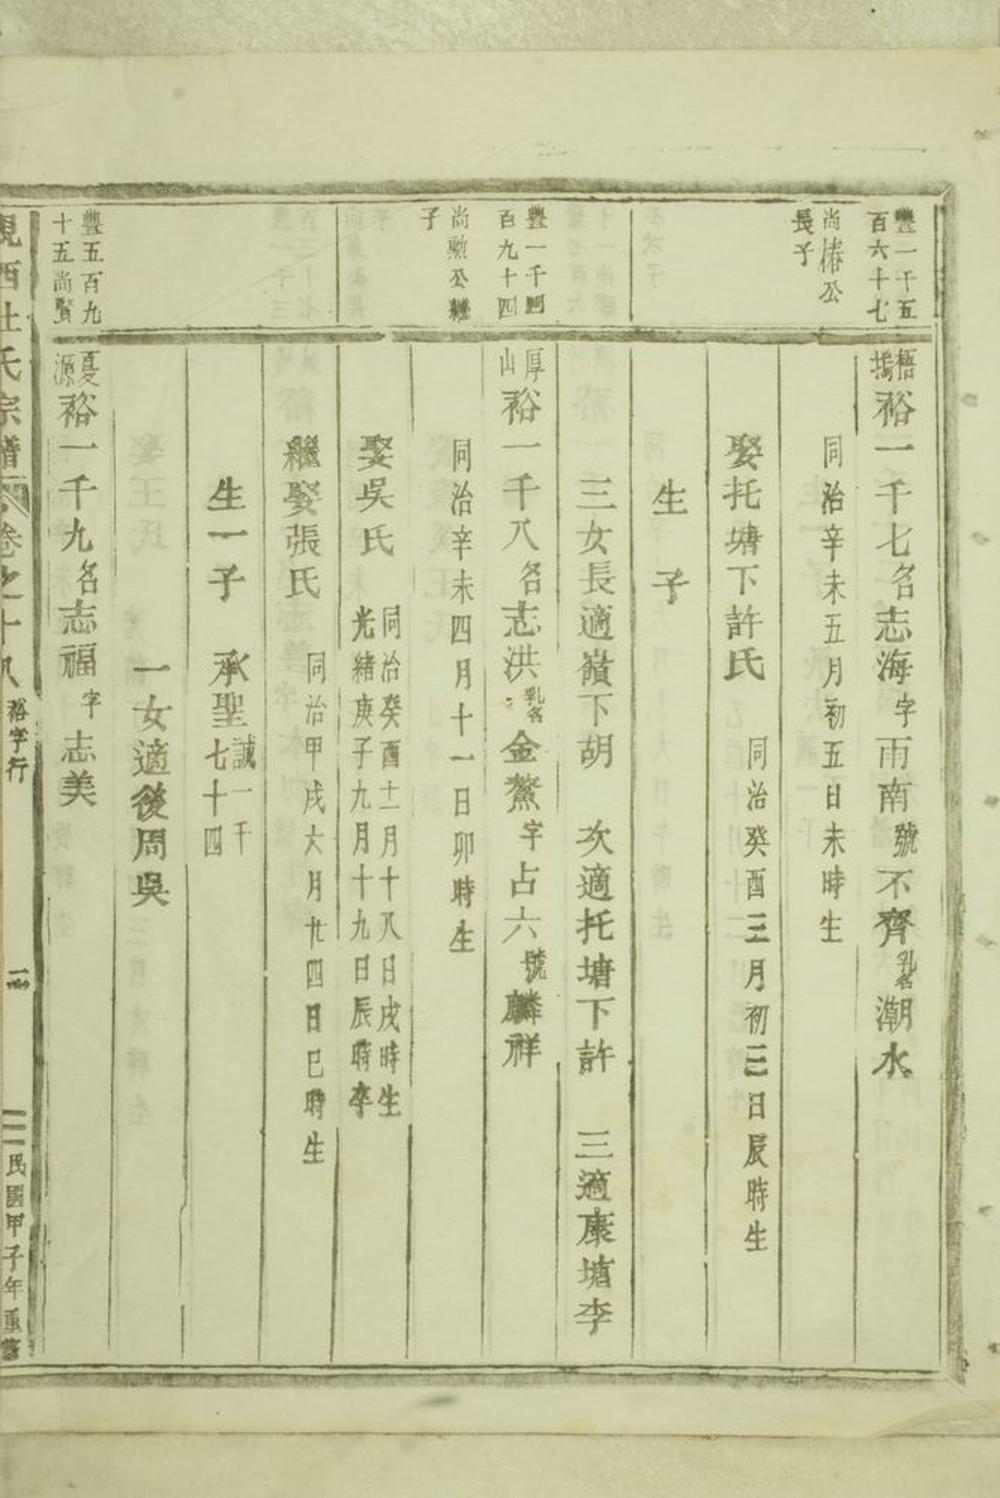 豐一千五百六十七
尚椿公長子
梧塢裕一千七名志海字雨南號不齊乳名潮水
同治辛未五月初五日未時生
娶托塘下許氏
同治癸酉三月初三日辰時生
生子
三女長適嶺下胡 次適托塘下許 三適康塘李
豐一千四百九十四
尚勲公繼子
厚山裕一千八名志洪乳名金鰲字占六號麟祥
同治辛未四月十一日卯時生
娶吳氏
同治癸酉十二月十八日戌時生
光緒庚子九月十九日辰時卒
繼娶張氏
同治甲戌六月廿四日巳時生
生一子 承聖誠一千七十四
一女適後周吳
豐五百九十五尚賢
憂源裕一千九名志福字志美
峴西杜氏宗譜
卷之十八
裕字行
民國甲子年重修